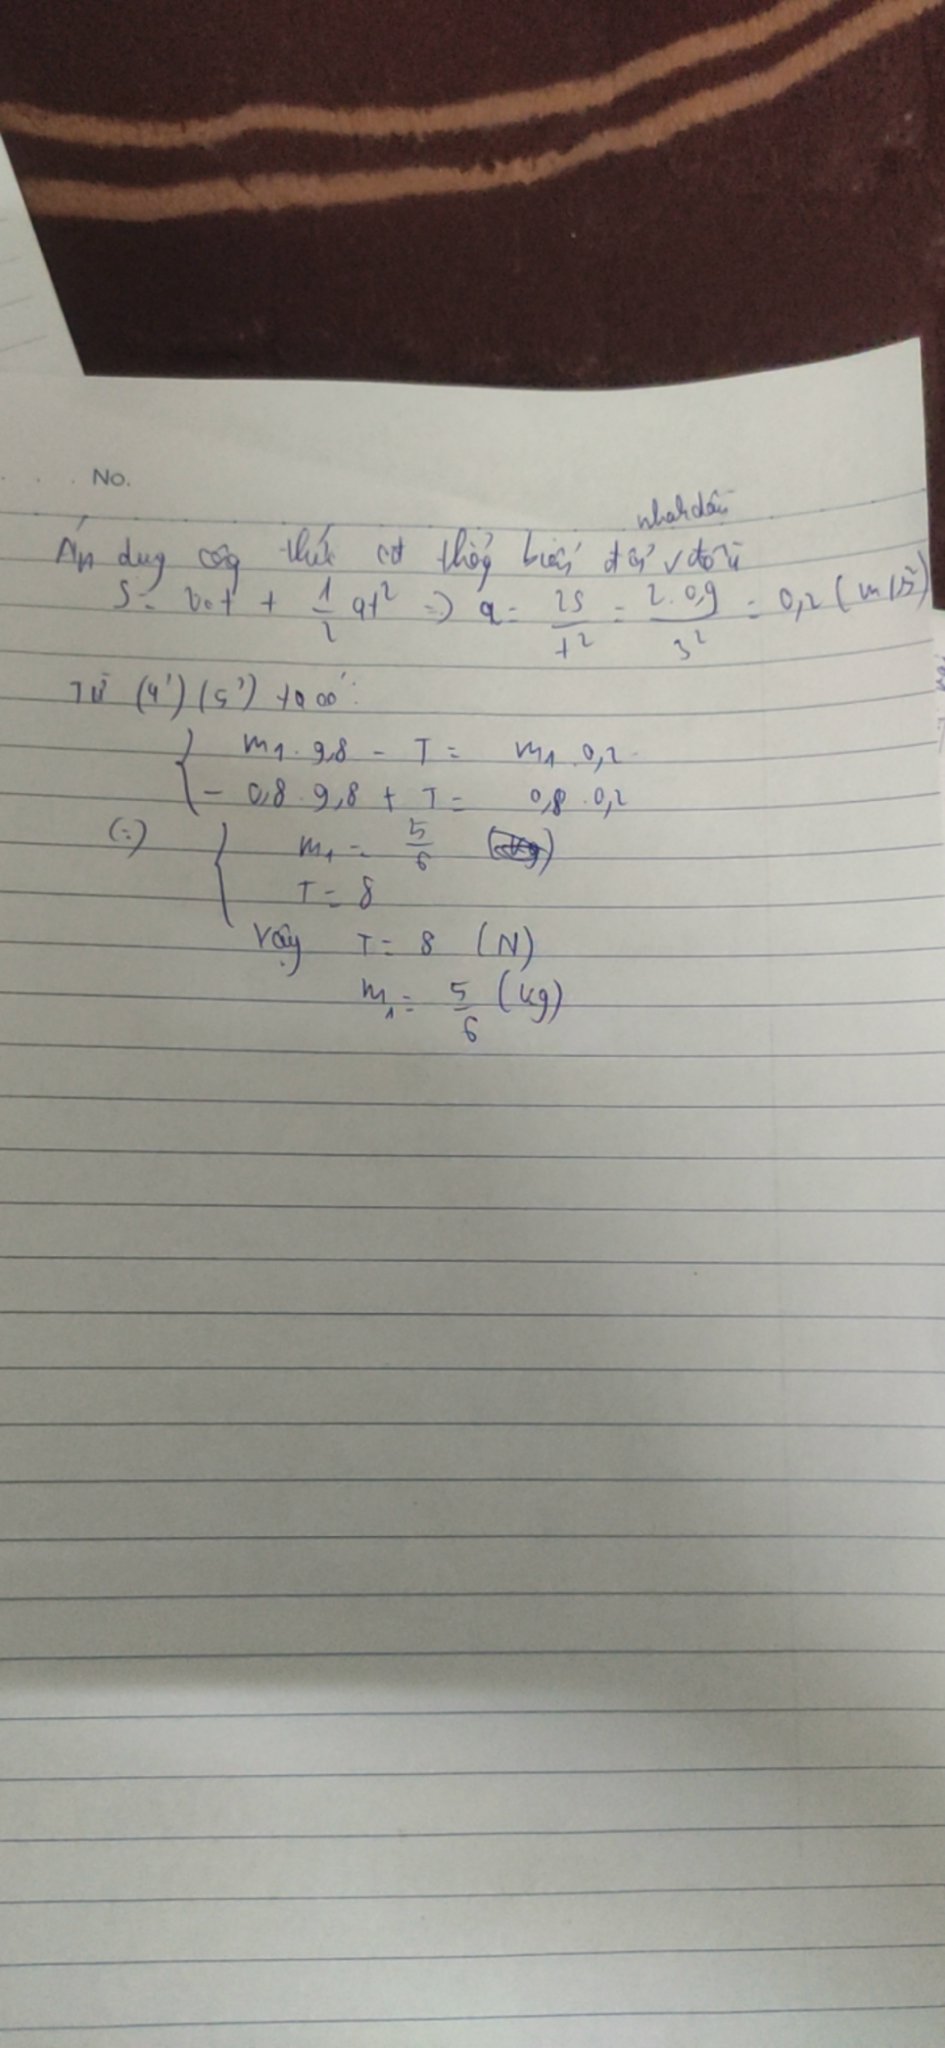 No.
nhanh dần
Áp dụng công thức cđ thẳg biến đổi đều
S = v₀t + 1/2 at² => a = 2S/t² = 2.0,9/3² = 0,2 (m/s²)
Từ (4') (5') ta có:
{ m₁. 9,8 - T = m₁.0,2
- 0,8.9,8 + T = 0,8.0,2
(=) { m₁ = 5/6
T = 8
Vậy T = 8 (N)
m₁ = 5/6 (kg)